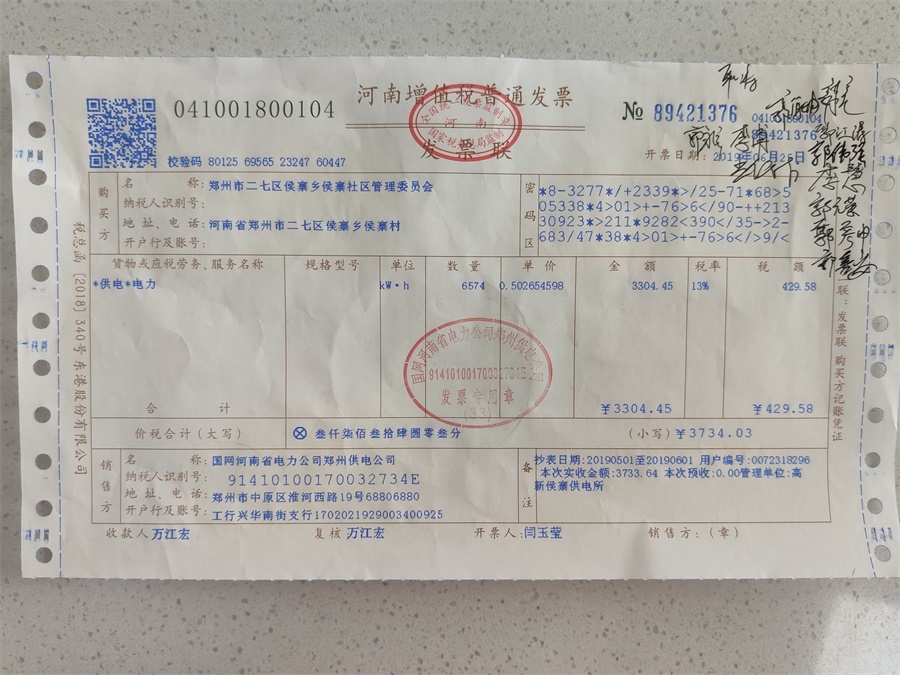 041001800104
河南增值税普通发票
发票联
№ 89421376
041001800104
89421376
校验码 80125 69565 23247 60447
开票日期: 2019年06月25日
购买方
名称: 郑州市二七区侯寨乡侯寨社区管理委员会
纳税人识别号:
地址、电话: 河南省郑州市二七区侯寨乡侯寨村
开户行及账号:
密码区
*8-3277*/+2339*>/25-71*68>5
05338*4>01>+-76>6</90-++213
30923*>211*9282<390</35->2-
683/47*38*4>01>+-76>6</>9/<
货物或应税劳务、服务名称 规格型号 单位 数量 单价 金额 税率 税额
*供电*电力 kW·h 6574 0.502654598 3304.45 13% 429.58
合计 ¥3304.45 ¥429.58
价税合计(大写) ⊗ 叁仟柒佰叁拾肆圆零叁分 (小写) ¥3734.03
销售方
名称: 国网河南省电力公司郑州供电公司
纳税人识别号: 91410100170032734E
地址、电话: 郑州市中原区淮河西路19号68806880
开户行及账号: 工行兴华南街支行1702021929003400925
备注
抄表日期:20190501至20190601 用户编号:0072318296
本次实收金额:3733.64 本次预收:0.00管理单位:高
新侯寨供电所
收款人 万江宏 复核 万江宏 开票人: 闫玉莹 销售方: (章)
税总函〔2018〕340号东港股份有限公司
联: 发票联 购买方记账凭证
国网河南省电力公司郑州供电公司
91410100170032734E
发票专用章
(33)
河南